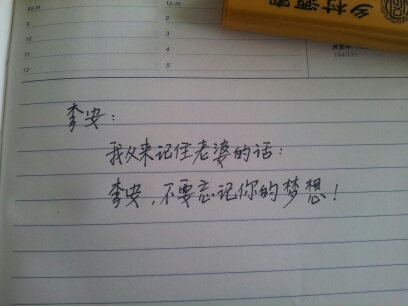 1p.m.
9
2
10
3
11
4
12
5
乡村
李安：
我从来记住老婆的话：
李安，不要忘记你的梦想！